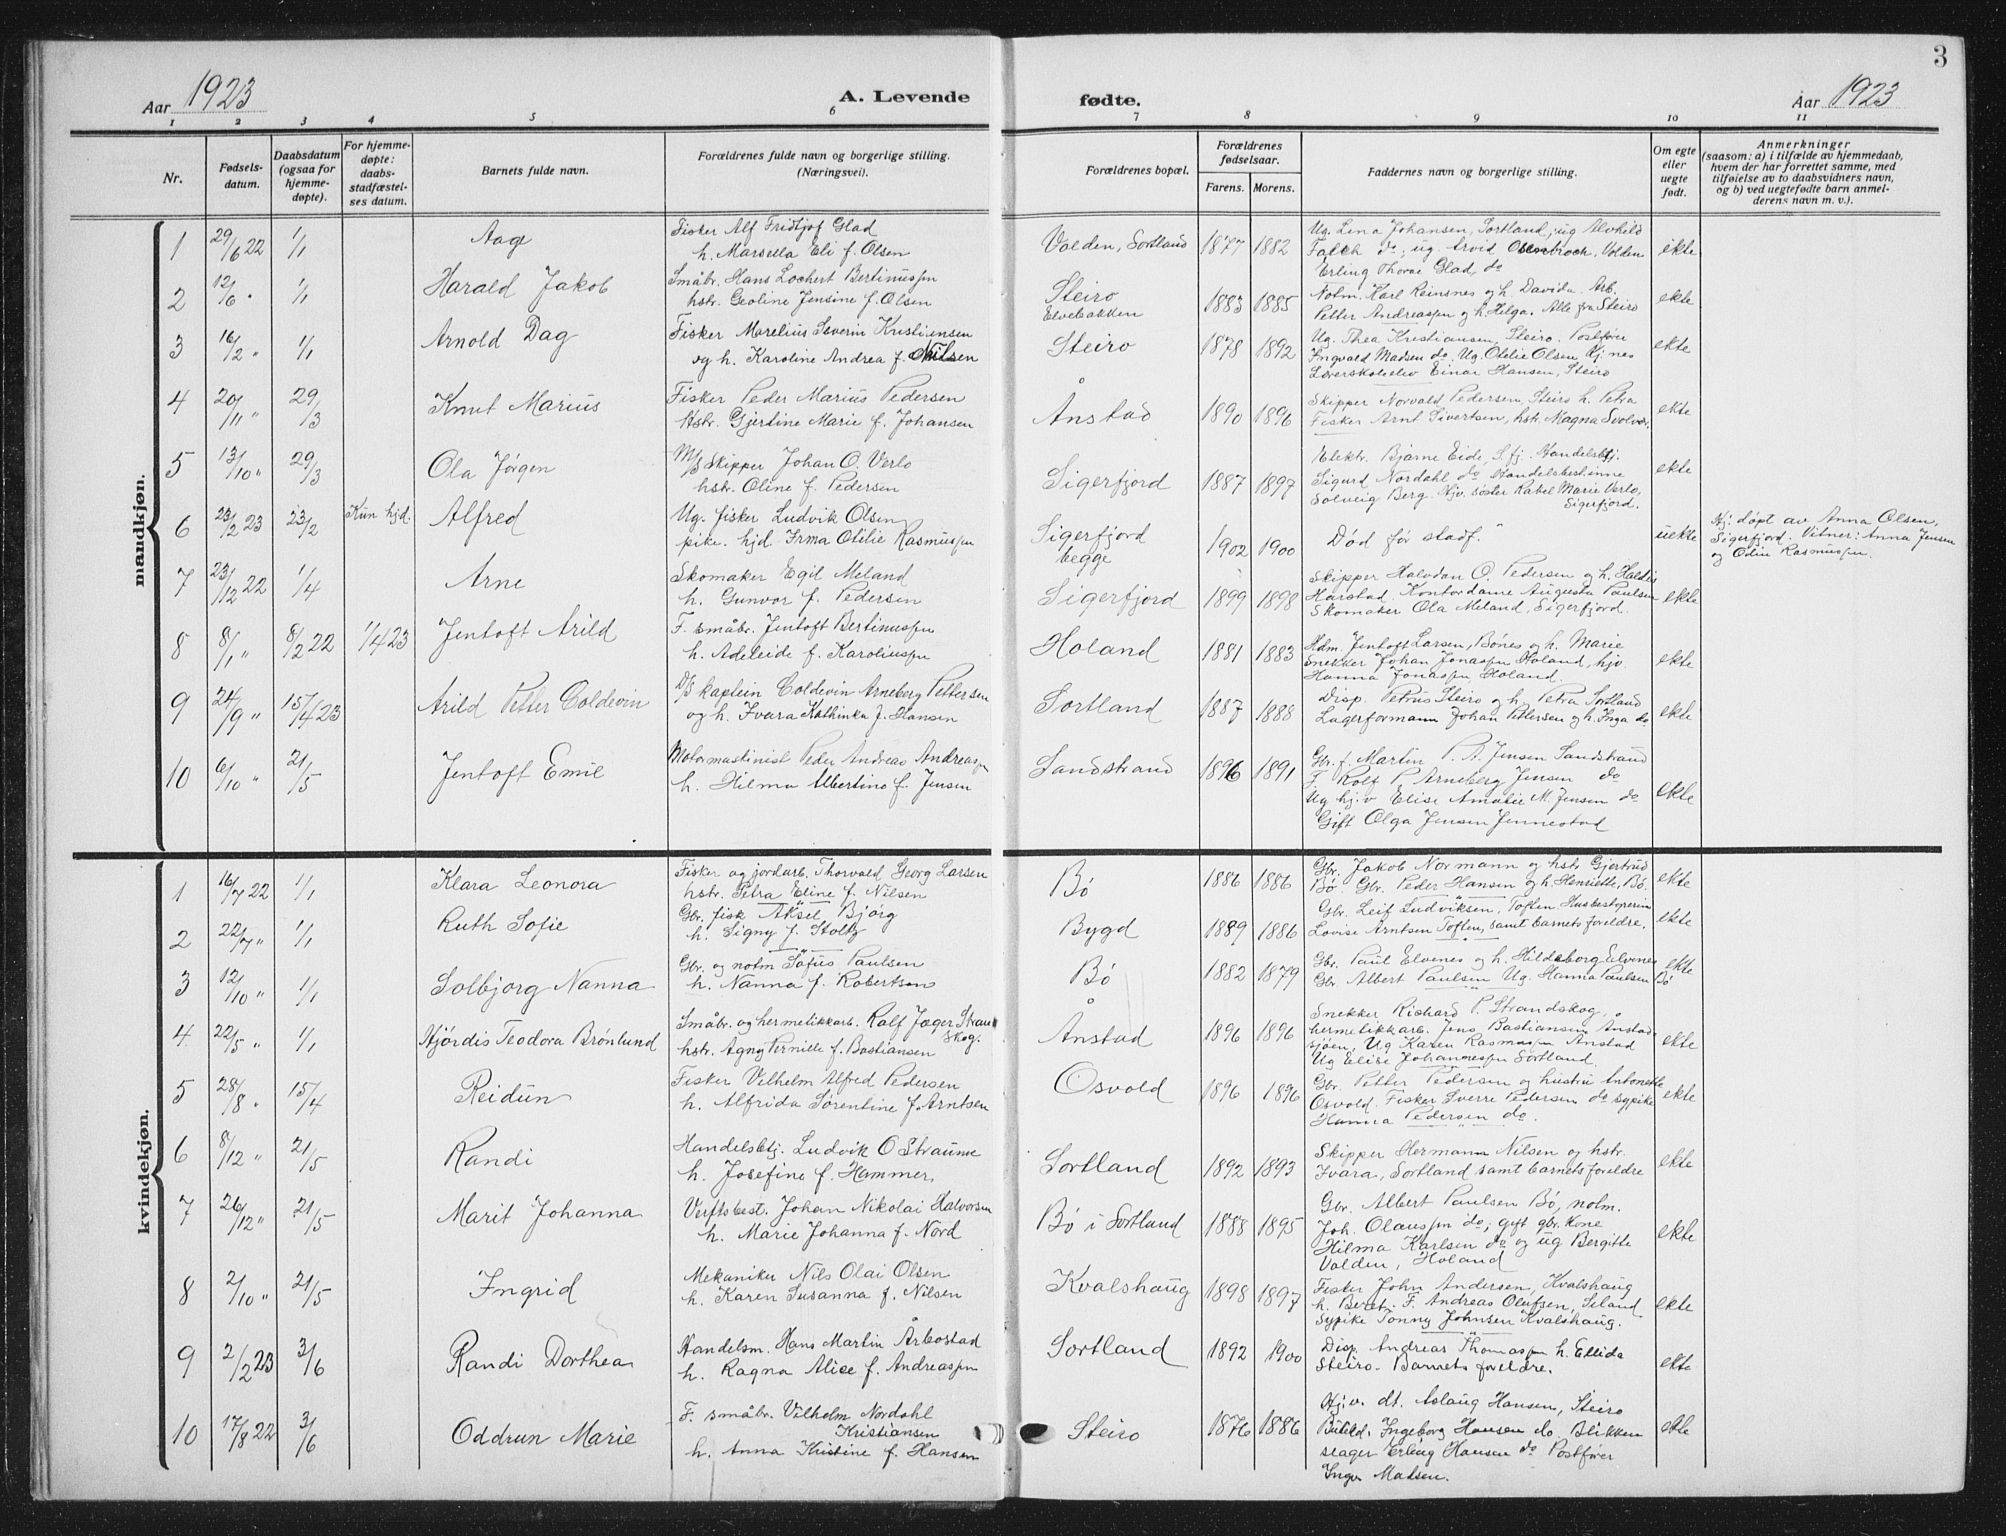 3
Aar 1923
A. Levende
fødte.
Aar 1923
1 2 3 4 5 6 7 8 9 10 11
Nr.
Fødsels-
datum.
Daabsdatum
(ogsaa for
hjemme-
døpte).
For hjemme-
døpte:
daabs-
stadfæstel-
ses datum.
Barnets fulde navn.
Forældrenes fulde navn og borgerlige stilling.
(Næringsvei).
Forældrenes bopæl.
Forældrenes
fødselsaar.
Farens. Morens.
Faddernes navn og borgerlige stilling.
Om egte
eller
uegte
født.
Anmerkninger
(saasom: a) i tilfælde av hjemmedaab,
hvem der har forrettet samme, med
tilføielse av to daabsvidners navn,
og b) ved uegtefødte barn anmel-
derens navn m. v.).
mandkjøn.
1 29/6 22 1/1 Aage
Fisker Alf Fridtjof Glad
h. Marsella Eli f. Olsen
Valden, Sortland 1877 1882
Ug. Lina Johansen, Sortland, ug Alvhild
Falch do, ug. Arvid Valden
Erling Thorae Glad, do
ekte
2 12/6 " 1/1 Harald Jakob
Småbr. Hans Lochert Bertinussen
hstr. Geoline Jensine f. Olsen
Steiro
Elvebakken
1883 1885
Notm. Karl Reinsnes og h. Davida. Arb.
Petter Andreassen og h. Helga. Alle fra Steiro
ekte
3 16/2 " 1/1 Arnold Dag
Fisker Marelius Severin Kristiansen
og h. Karoline Andrea f. Nilsen
Steiro 1878 1892
Ug. Thea Kristiansen, Steiro. Postfører
Ingvald Madsen do. Ug. Otelie Olsen Kj.nes
Lærerskoleelev Einar Hansen, Steiro
ekte
4 20/11 " 29/3 Knut Marius
Fisker Peder Marius Pedersen
Hstr. Gjertine Marie f. Johansen
Ånstad 1890 1896
Skipper Norvald Pedersen, Steiro h. Petra
Fisker Arnt Sivertsen, hstr. Magna Svolvær.
ekte
5 13/10 " 29/3 Ola Jørgen
M/S Skipper Johan O. Verlo
hstr. Oline f. Pedersen
Sigerfjord 1887 1897
Elektr. Bjarne Eide S.fj. Handelsbtj.
Sigurd Nordahl do Handelsbetjenne
Solveig Berg. Hjv. søster Rakel Marie Verlo,
Sigerfjord.
ekte
6 23/2 23 23/2 Kun hjd. Alfred
Ug. fisker Ludvik Olsen
pike. hjd. Irma Otilie Rasmussen
Sigerfjord
begge
1902 1900
Død før stadf.
uekte
Hj. døpt av Anna Olsen,
Sigerfjord. Vitner: Anna Jensen
og Odin Rasmussen.
7 23/12 22 1/4 Arne
Skomaker Egil Meland
h. Gunvor f. Pedersen
Sigerfjord 1899 1898
Skipper Halvdan O. Pedersen og h. Haldis
Harstad. Kontordame Augusta Paulsen
Skomaker Ola Meland, Sigerfjord.
ekte
8 8/1 " 8/2 22 1/4 23 Jentoft Arild
F. småbr. Jentoft Bertinussen
h. Adeleide f. Karoliussen
Holand 1881 1883
Hdm. Jentoft Larsen, Bønes og h. Marie
Snekker Johan Jonassen Holand, hjv.
Hanna Jonassen, Holand.
ekte
9 24/9 " 15/4 23 Arild Petter Coldevin
D/S kaptein Coldevin Arneberg Pettersen
og h. Ivara Kathinka f. Hansen
Sortland 1887 1888
Disp. Petrus Steiro og h. Petra Sortland
Lagerformann Johan Pettersen og h. Inga do
ekte
10 6/10 " 21/5 Jentoft Emil
Motormaskinist Peder Andreas Andreassen
h. Hilma Albertine f. Jensen
Sandstrand 1896 1891
Gbr. f. Martin P. A. Jensen Sandstrand
F. Rolf P. Arneberg Jensen do
Ug hj.v Elise Amalie M. Jensen do
Gift Olga Jensen Jennestad
ekte
kvindekjøn.
1 16/7 22 1/1 Klara Leonora
Fisker og jordarb. Thorvald Georg Larsen
hstr. Petra Eline f. Nilsen
Bø 1886 1886
Gbr. Jakob Normann og hstr Gjertrud
Bø. Gbr. Peder Hansen og h. Henriette, Bø.
ekte
2 22/7 " 1/1 Ruth Sofie
Gbr. fisk Aksel Bjørg
h. Signy f. Stoltz
Bygd 1889 1886
Gbr. Leif Ludviksen, Toften Husbestyrerin
Lovise Arntsen Toften, samt barnets foreldre.
ekte
3 12/10 " 1/1 Solbjørg Nanna
Gbr. og notm Sofus Paulsen
h. Nanna f. Robertsen
Bø 1882 1879
Gbr. Paul Elvenes og h. Hildeborg Elvenes
Gbr. Albert Paulsen Ug. Hanna Paulsen Bø
ekte
4 22/5 " 1/1 Hjørdis Teodora Brønlund
Småbr. og hermetikkarb. Ralf Jæger Strand
skog.
hstr. Agny Pernille f. Bastiansen
Ånstad 1896 1896
Snekker Rishard P. Strandskog,
hermetikkarb. Jens Bastiansen Anstad
sjøen, Ug Karen Rasmussen Anstad
Ug Elise Johannessen Sortland
ekte
5 28/8 " 15/4 Reidun
Fisker Vilhelm Alfred Pedersen
h. Alfrida Sørentine f. Arntsen
Osvold 1896 1896
Gbr. Petter Pedersen og hustru Antonette
Osvold. Fisker Sverre Pedersen do sypike
Hanna Pedersen do.
ekte
6 8/12 " 21/5 Randi
Handelsbtj. Ludvik O Straume
h. Josefine f. Hammer
Sortland 1892 1893
Skipper Hermann Nilsen og hstr.
Ivara, Sortland samt barnets foreldre
ekte
7 26/12 " 21/5 Marit Johanna
Verftsbest. Johan Nikolai Halvorsen
h. Marie Johanna f. Nord
Bø i Sortland 1888 1895
Gbr. Albert Paulsen Bø, notm.
Joh. Olaussen do; gift gbr. kone
Hilma Karlsen do og ug Bergitte
Valden, Holand
ekte
8 2/10 " 21/5 Ingrid
Mekaniker Nils Olai Olsen
h. Karen Susanna f. Nilsen
Kvalshaug 1898 1897
Fisker John Andersen, Kvalshaug
h. Beret. F. Andreas Olufsen, Seland
Sypike Tonny Johnsen Kvalshaug.
ekte
9 2/2 23 3/6 Randi Dorthea
Handelsm. Hans Martin Årbostad
h. Ragna Alice f. Andreassen
Sortland 1892 1900
Disp. Andreas Thomassen h. Ellida
Steiro. Barnets foreldre.
ekte
10 17/8 22 3/6 Oddrun Marie
F. småbr. Vilhelm Nordahl
Kristiansen
h. Anna Kristine f. Hansen
Steiro 1876 1886
Hj.v. dt. Aslaug Hansen, Steiro
Ingeborg Hansen do. Blikken
slager Erling Hansen do Postfører
Ingv. Madsen.
ekte